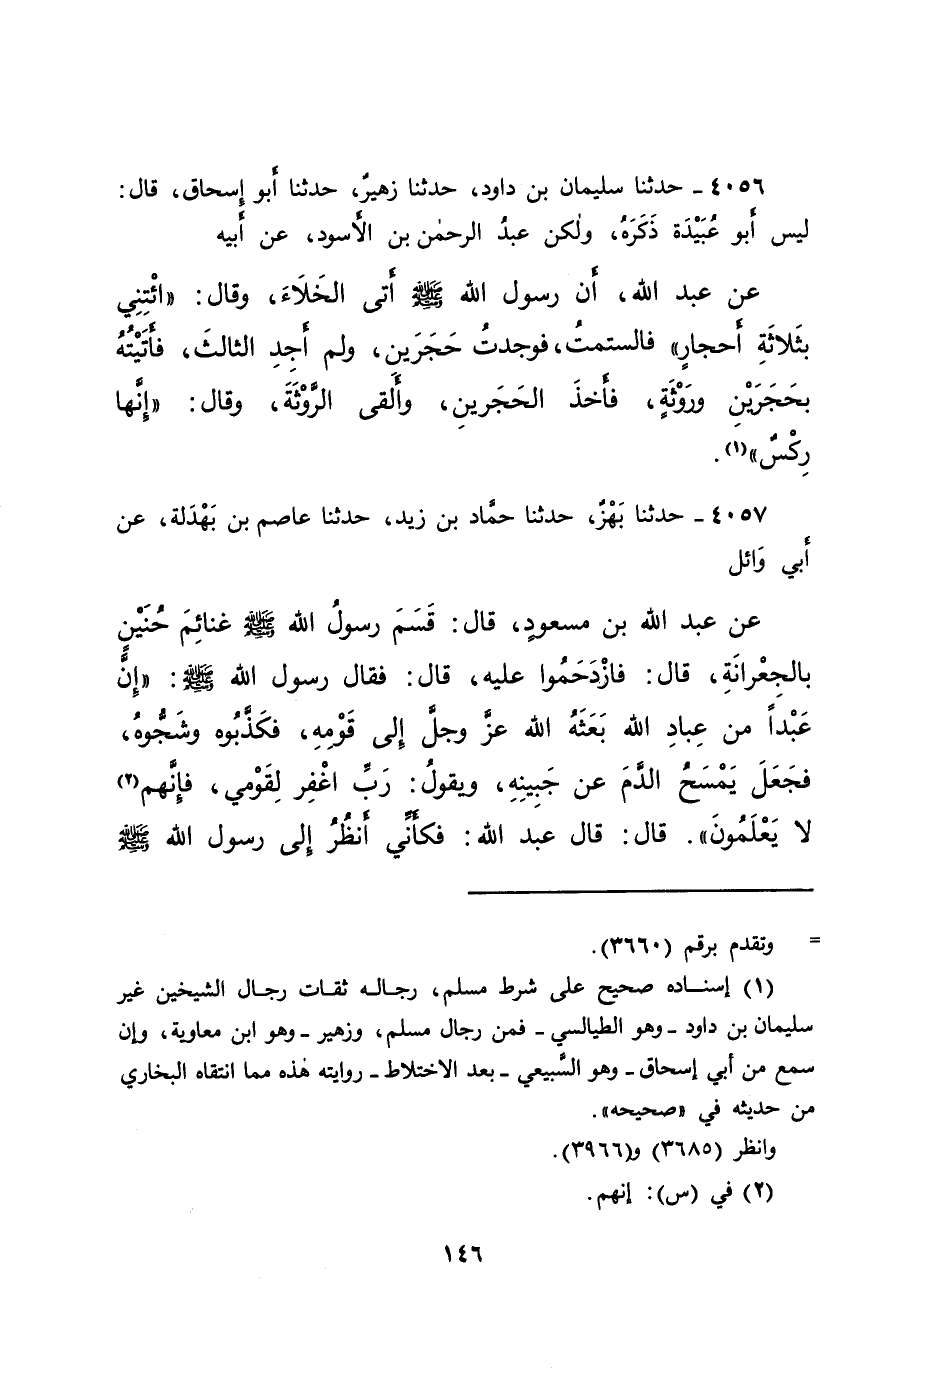 ٤٠٥٦ ـ حدثنا سليمان بن داود، حدثنا زهيرٌ، حدثنا أَبو إِسحاق، قال:
ليس أَبو عُبَيْدَة ذَكَرَهُ، ولٰكن عبدُ الرحمٰن بن الأَسود، عن أَبيه
عن عبد الله، أَن رسول الله ﷺ أَتى الخَلَاءَ، وقال: «ائْتِنِي
بثَلاثَةِ أَحجارٍ» فالستمتُ، فوجدتُ حَجَرَينِ، ولم أَجِدِ الثالثَ، فأَتَيْتُهُ
بحَجَرَيْنِ ورَوْثَةٍ، فأَخذَ الحَجَرينِ، وأَلقى الرَّوْثَةَ، وقال: «إِنَّها
رِكْسٌ»(١).
٤٠٥٧ ـ حدثنا بَهْزٌ، حدثنا حمَّاد بن زيد، حدثنا عاصم بن بَهْدَلة، عن
أَبي وَائل
عن عبد الله بن مسعودٍ، قال: قَسَمَ رسولُ الله ﷺ غنائِمَ حُنَيْنٍ
بالجِعْرانَةِ، قال: فازْدَحَمُوا عليه، قال: فقال رسول الله ﷺ: «إِنَّ
عَبْداً من عِبادِ الله بَعَثَهُ الله عزَّ وجلَّ إِلى قَوْمِهِ، فكَذَّبُوه وشَجُّوهُ،
فجَعَلَ يَمْسَحُ الدَّمَ عن جَبِينِهِ، ويقولُ: رَبِّ اغْفِر لِقَوْمي، فإِنَّهم(٢)
لا يَعْلَمُونَ». قال: قال عبد الله: فكأَنِّي أَنظُرُ إِلى رسول الله ﷺ
= وتقدم برقم (٣٦٦٠).
(١) إسناده صحيح على شرط مسلم، رجاله ثقات رجال الشيخين غير
سليمان بن داود ـ وهو الطيالسي ـ فمن رجال مسلم، وزهير ـ وهو ابن معاوية، وإن
سمع من أبي إسحاق ـ وهو السَّبيعي ـ بعد الاختلاط ـ روايته هٰذه مما انتقاه البخاري
من حديثه في «صحيحه».
وانظر (٣٦٨٥) و(٣٩٦٦).
(٢) في (س): إنهم.
١٤٦